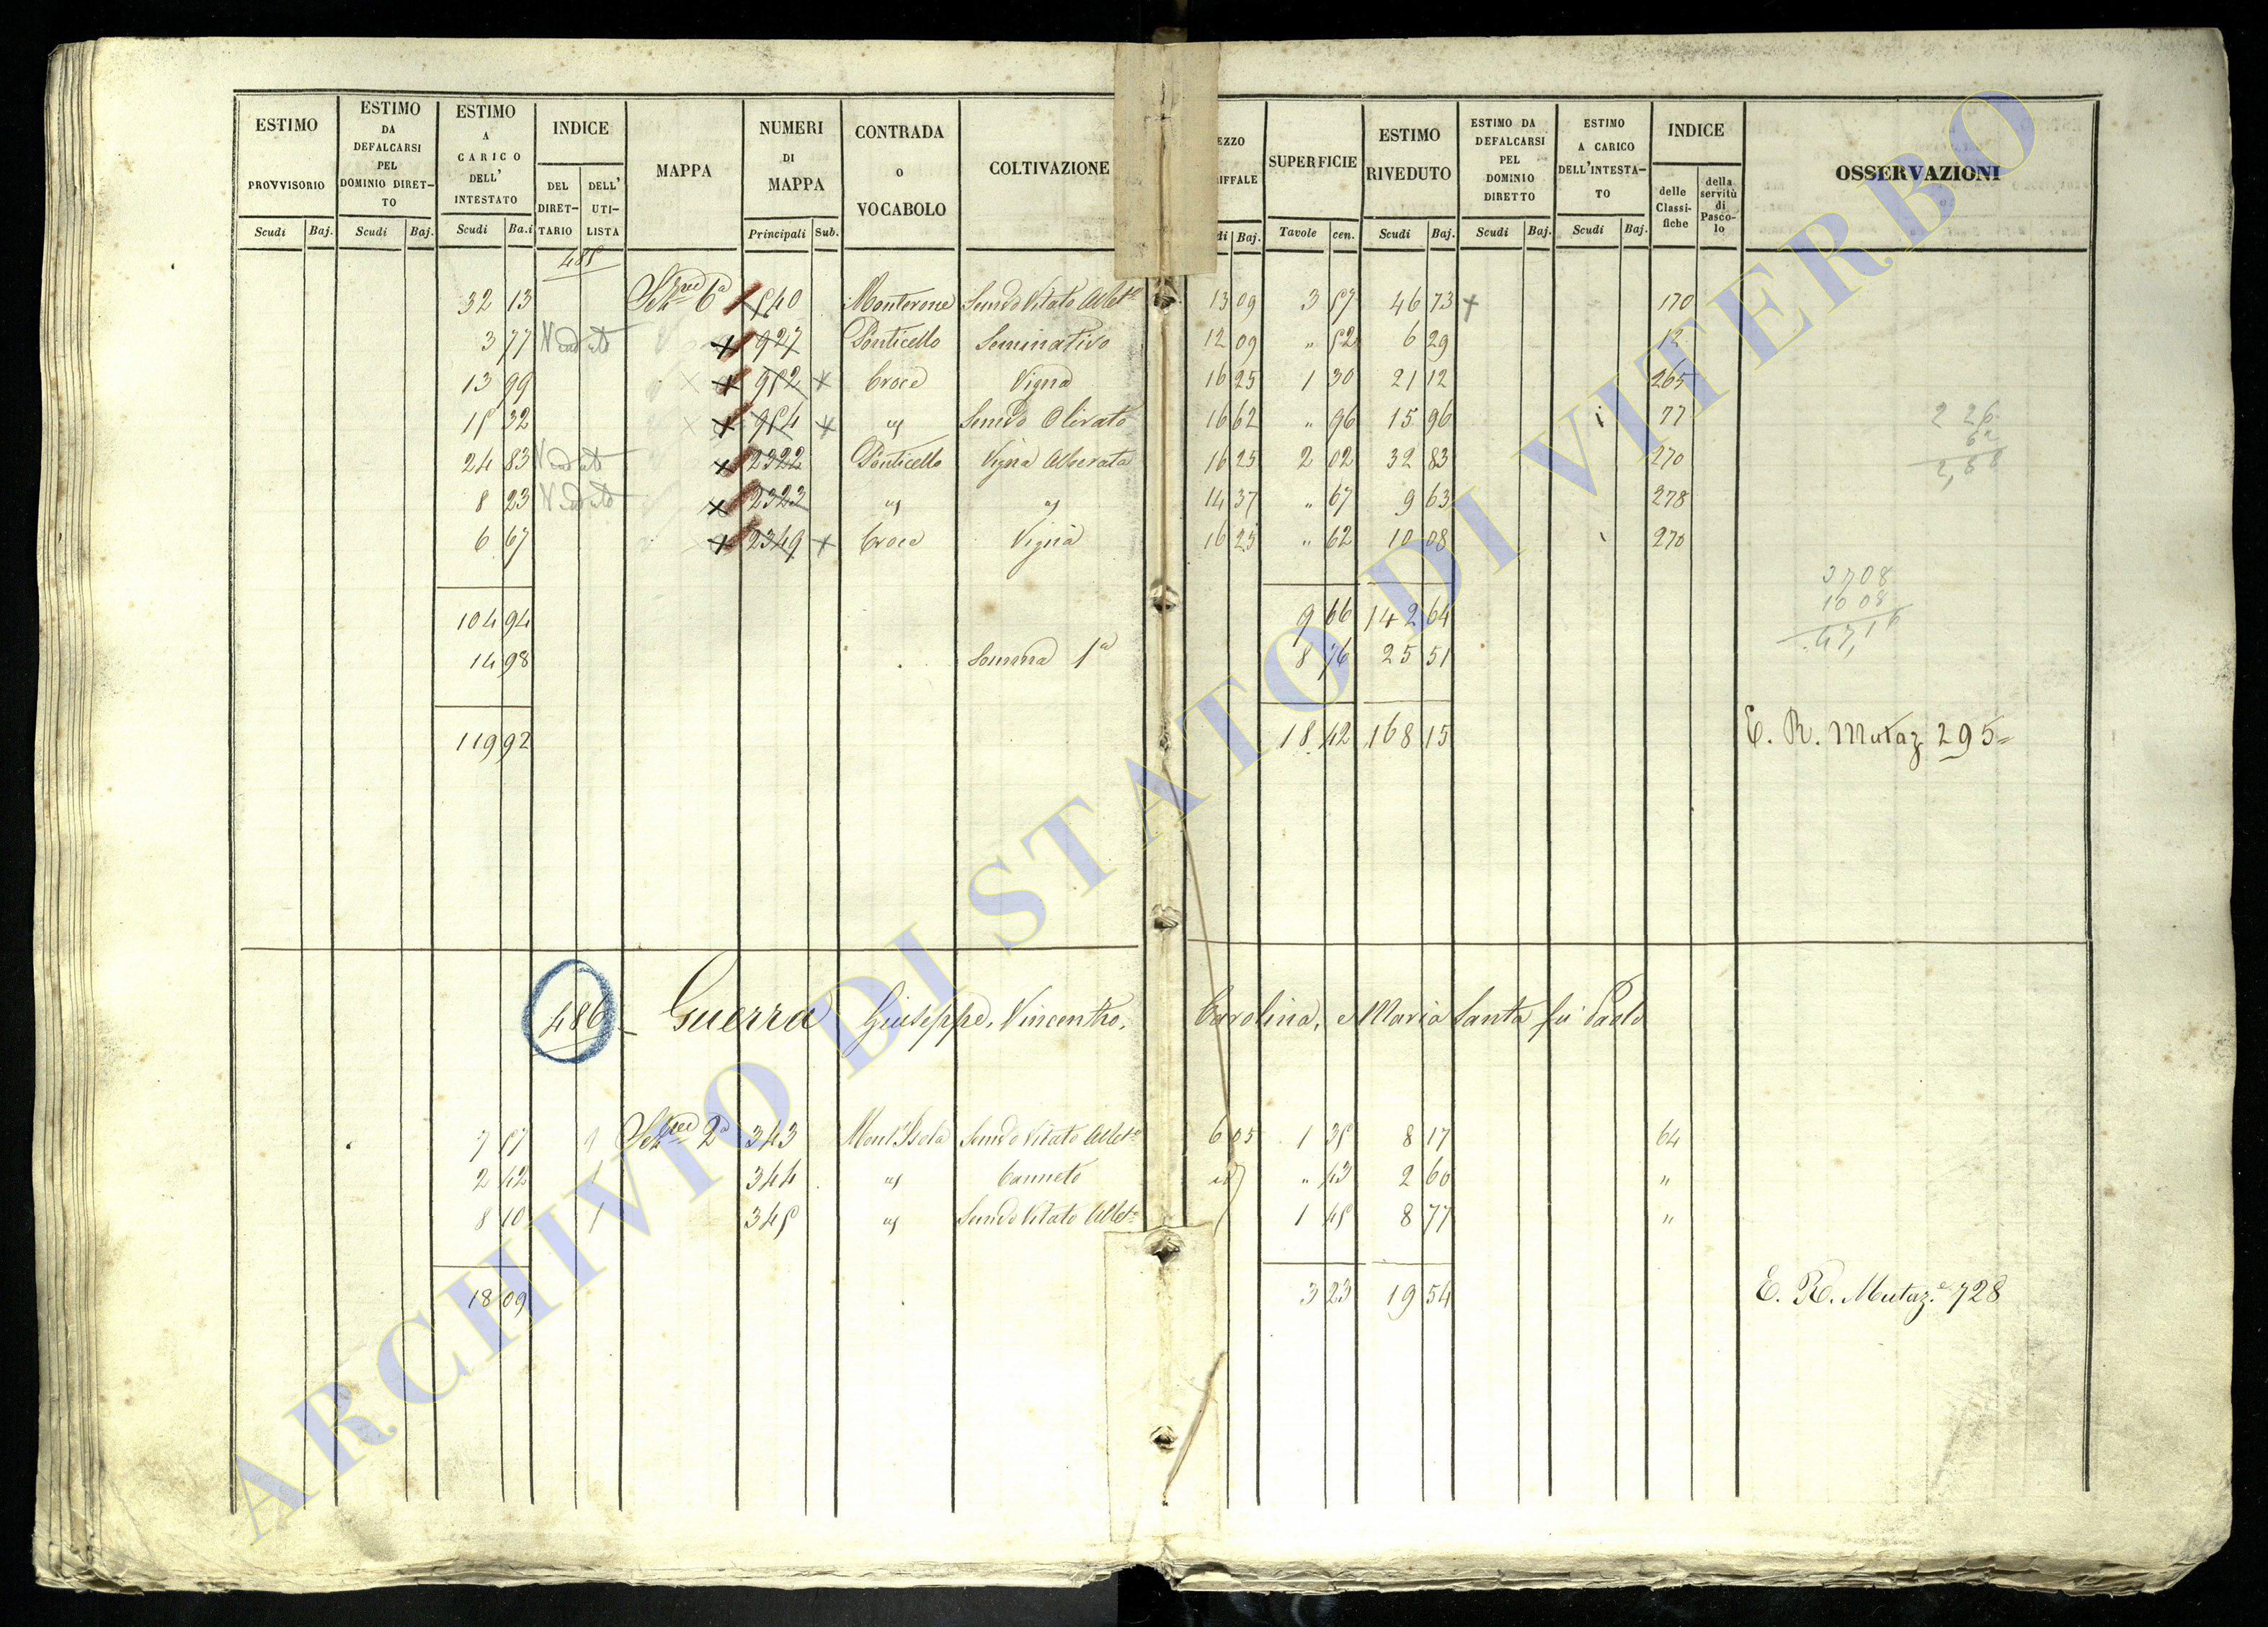 ESTIMO PROVVISORIO Scudi Baj.
ESTIMO DA DEFALCARSI PEL DOMINIO DIRETTO Scudi Baj.
ESTIMO A CARICO DELL' INTESTATO Scudi Ba.i
INDICE DEL DIRETTARIO DELL' UTILISTA
MAPPA
NUMERI DI MAPPA Principali Sub.
CONTRADA o VOCABOLO
COLTIVAZIONE
EZZO IFFALE di Baj.
SUPERFICIE Tavole cen.
ESTIMO RIVEDUTO Scudi Baj.
ESTIMO DA DEFALCARSI PEL DOMINIO DIRETTO Scudi Baj.
ESTIMO A CARICO DELL'INTESTATO Scudi Baj.
INDICE delle Classifiche della servitù di Pascolo
OSSERVAZIONI
485
32 13 Sez.ne 6a 540 Monterone Semvo Vitato Albto 13 09 3 57 46 73 + 170
3 77 + 927 Ponticello Seminativo 12 09 " 52 6 29 12
13 99 + 952 + Croce Vigna 16 25 1 30 21 12 265
15 32 + 954 + id Semvo Olivato 16 62 " 96 15 96 77
24 83 + 2322 Ponticello Vigna Alberata 16 25 2 02 32 83 270
8 23 + 2323 id id 14 37 " 67 9 63 278
6 67 + 2349 + Croce Vigna 16 25 " 62 10 08 270
104 94 9 66 142 64
14 98 Somma 1a 8 76 25 51
119 92 18 42 168 15 E. R. Mutaz 295
2 26
62
2,88
3708
1008
47,16
486 Guerra Giuseppe, Vincenzo, Carolina, e Maria Santa fu Paolo
7 57 1 Sez.ne 2a 343 Mont'Isola Semvo Vitato Albto 6 05 1 35 8 17 64
2 42 1 344 id Canneto id " 43 2 60 "
8 10 1 345 id Semvo Vitato Albto 1 45 8 77 "
18 09 3 23 19 54 E. R. Mutaz.e 728
ARCHIVIO DI STATO DI VITERBO